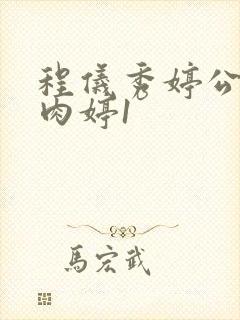 程儀秀婷公
肉婷1
馬宏武